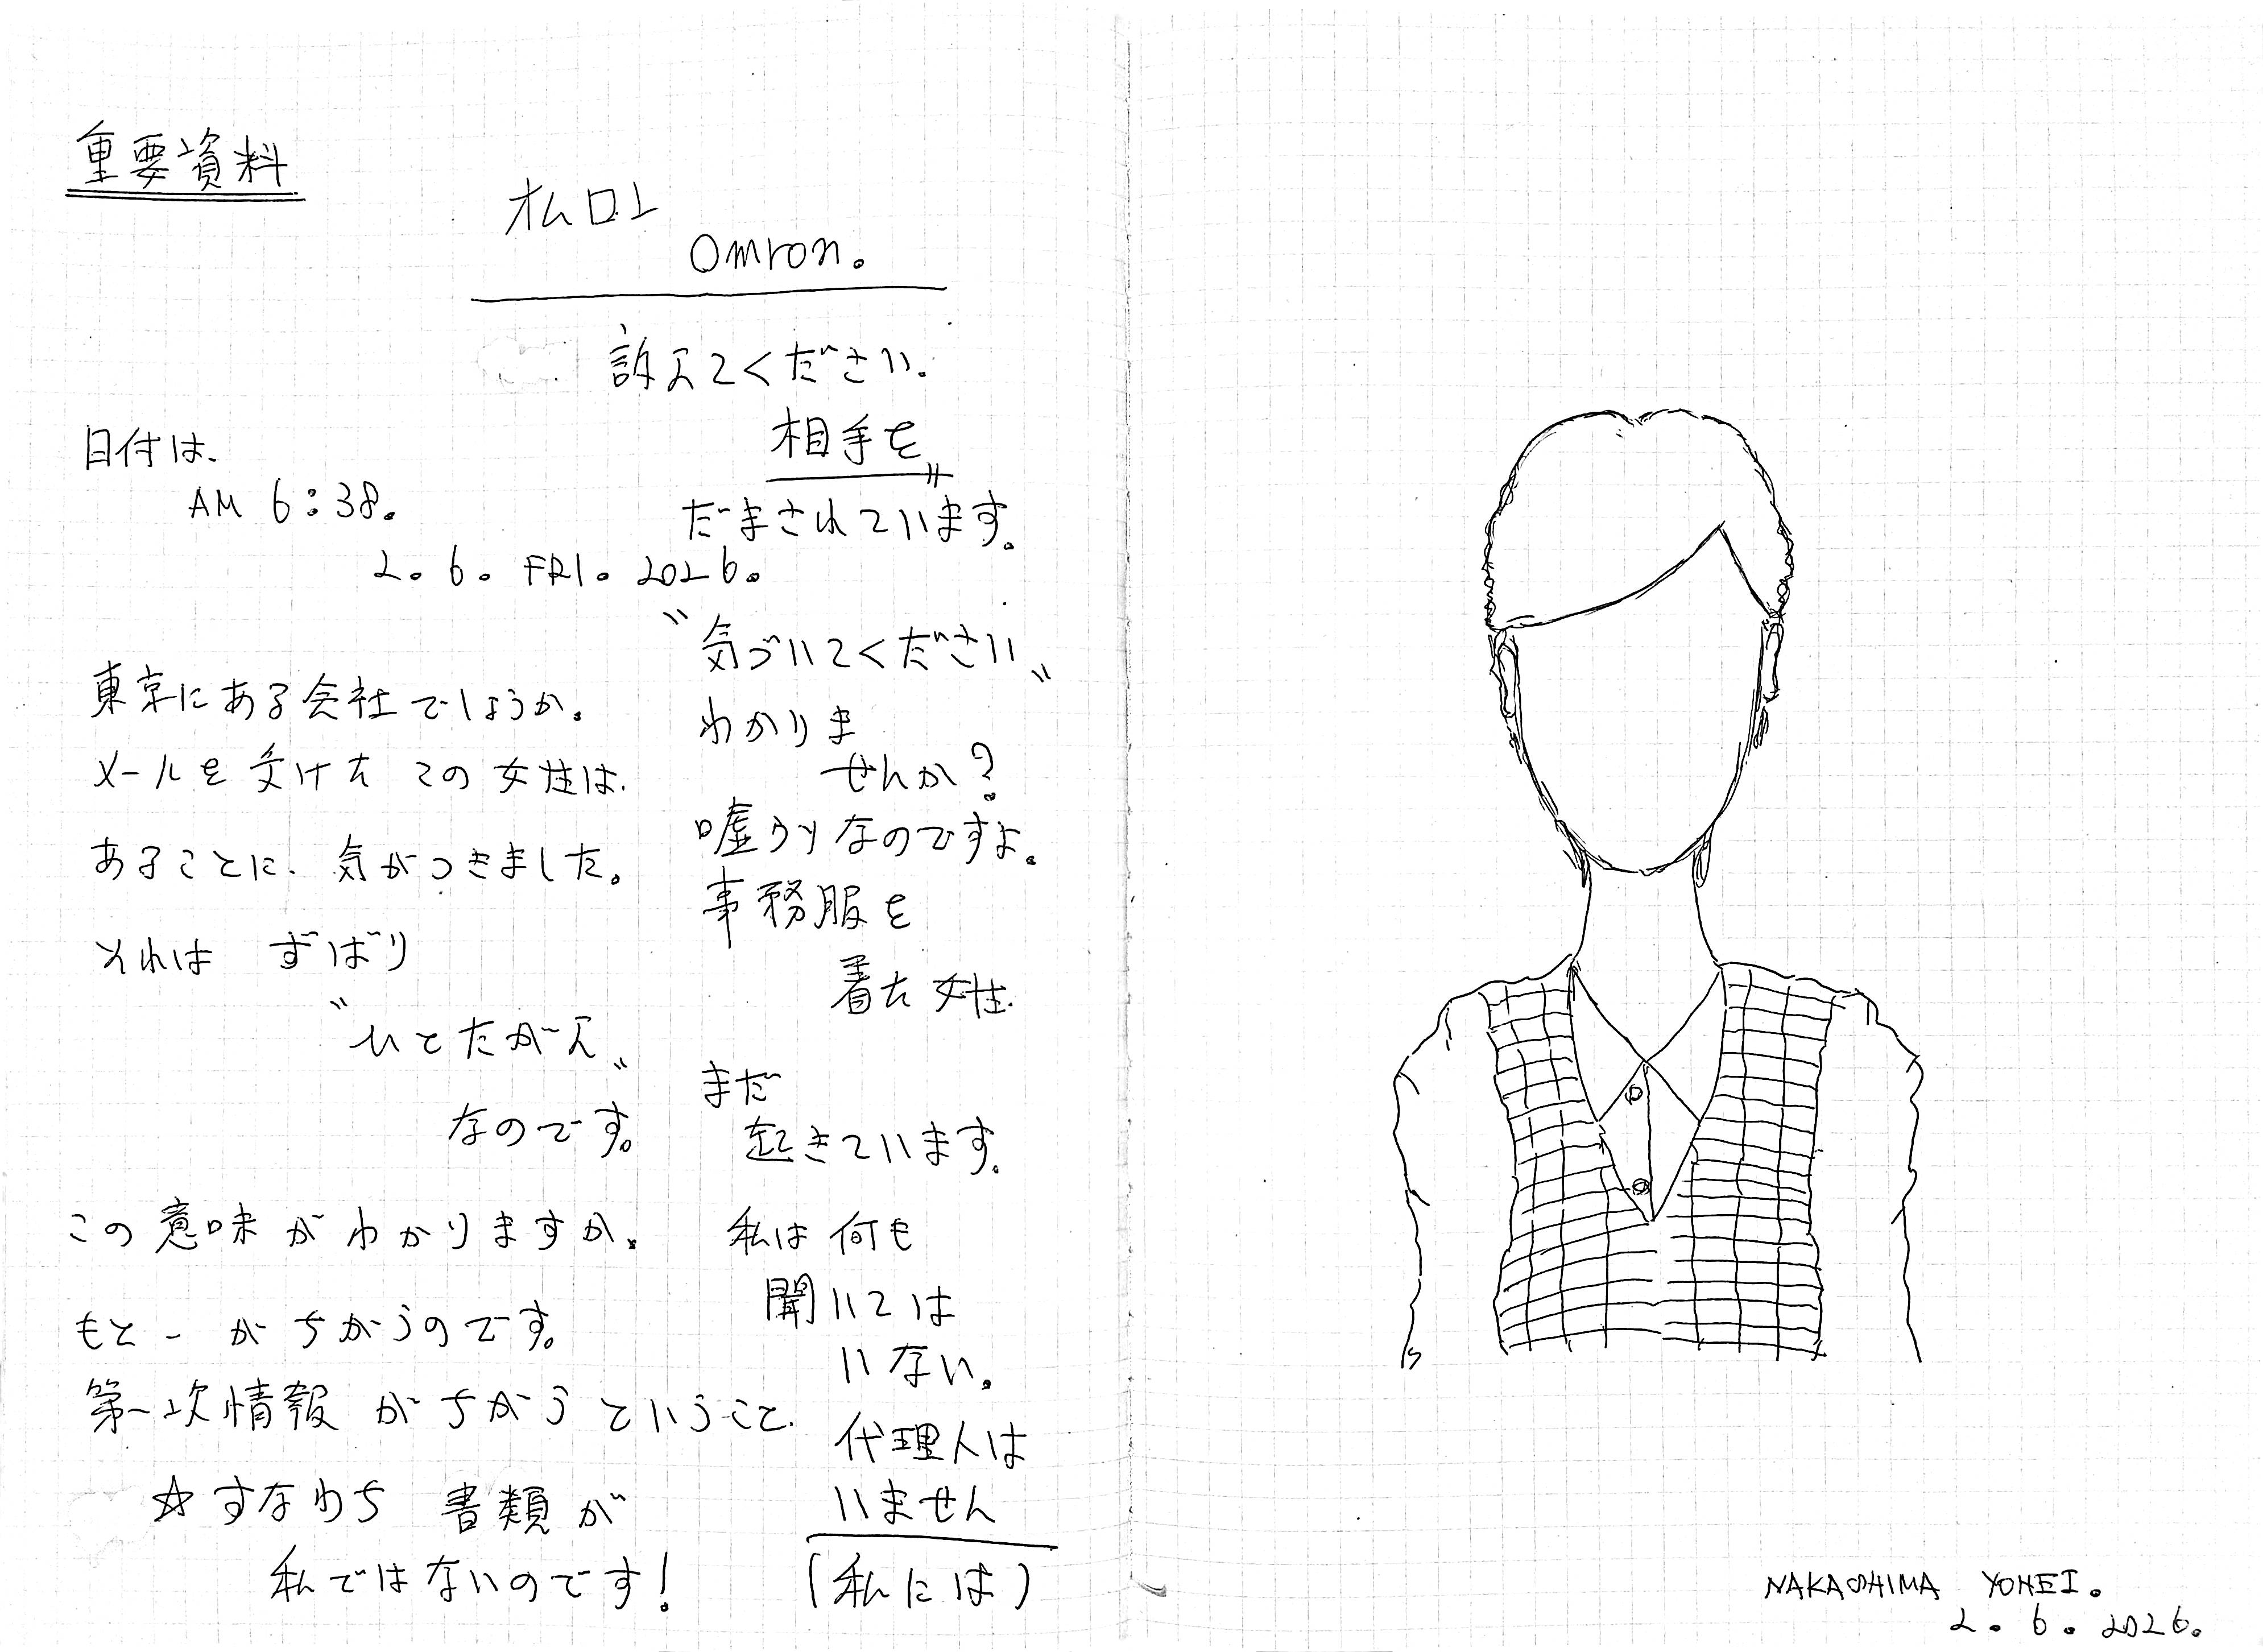 重要資料
オムロン
Omron.
訴えてください.
相手を
だまされています。
日付は、
AM 6:38.
2. 6. FRI. 2026.
東京にある会社でしょうか。
メールを受けた この女性は、
あることに、気がつきました。
それは ずばり
"ひとたがえ"
なのです。
この意味がわかりますか。
もと-がちがうのです。
第一次情報がちがうということ.
☆すなわち 書類が
私ではないのです!
"気づいてください"
わかりま
せんか?
嘘うりなのですよ。
事務服を
着た女性.
まだ
起きています。
私は何も
聞いては
いない。
代理人は
いません
(私には)
NAKASHIMA YOHEI.
2. 6. 2026.